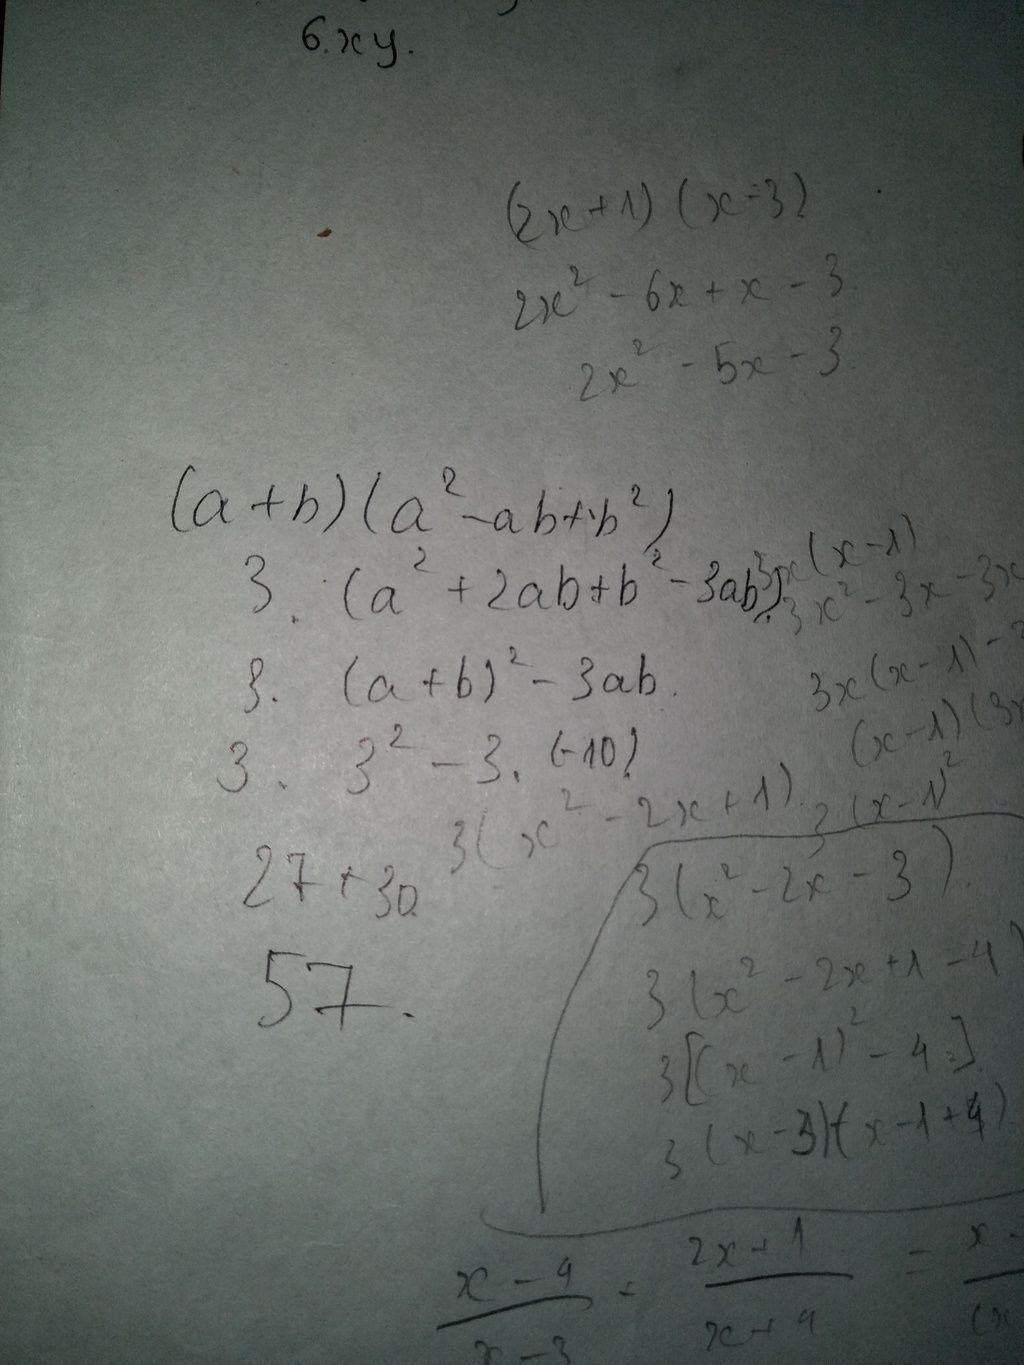 6.xy.
(2x+1) (x-3)
2x² - 6x + x - 3
2x² - 5x - 3
(a+b)(a²-ab+b²)
3. (a² + 2ab+b² - 3ab).
3. (a+b)² - 3ab.
3. 3² - 3. (-10)
27 + 30
57.
3x(x-1)
3x² - 3x - 3x
3x(x-1) -
(x-1)(3x
3(x² - 2x + 1) 3(x-1)²
3(x² - 2x - 3).
3(x² - 2x + 1 - 4)
3[(x - 1)² - 4]
3(x-3)(x-1+4)
x - 4 / x - 3 · 2x + 1 / x + 4 = x - / (x